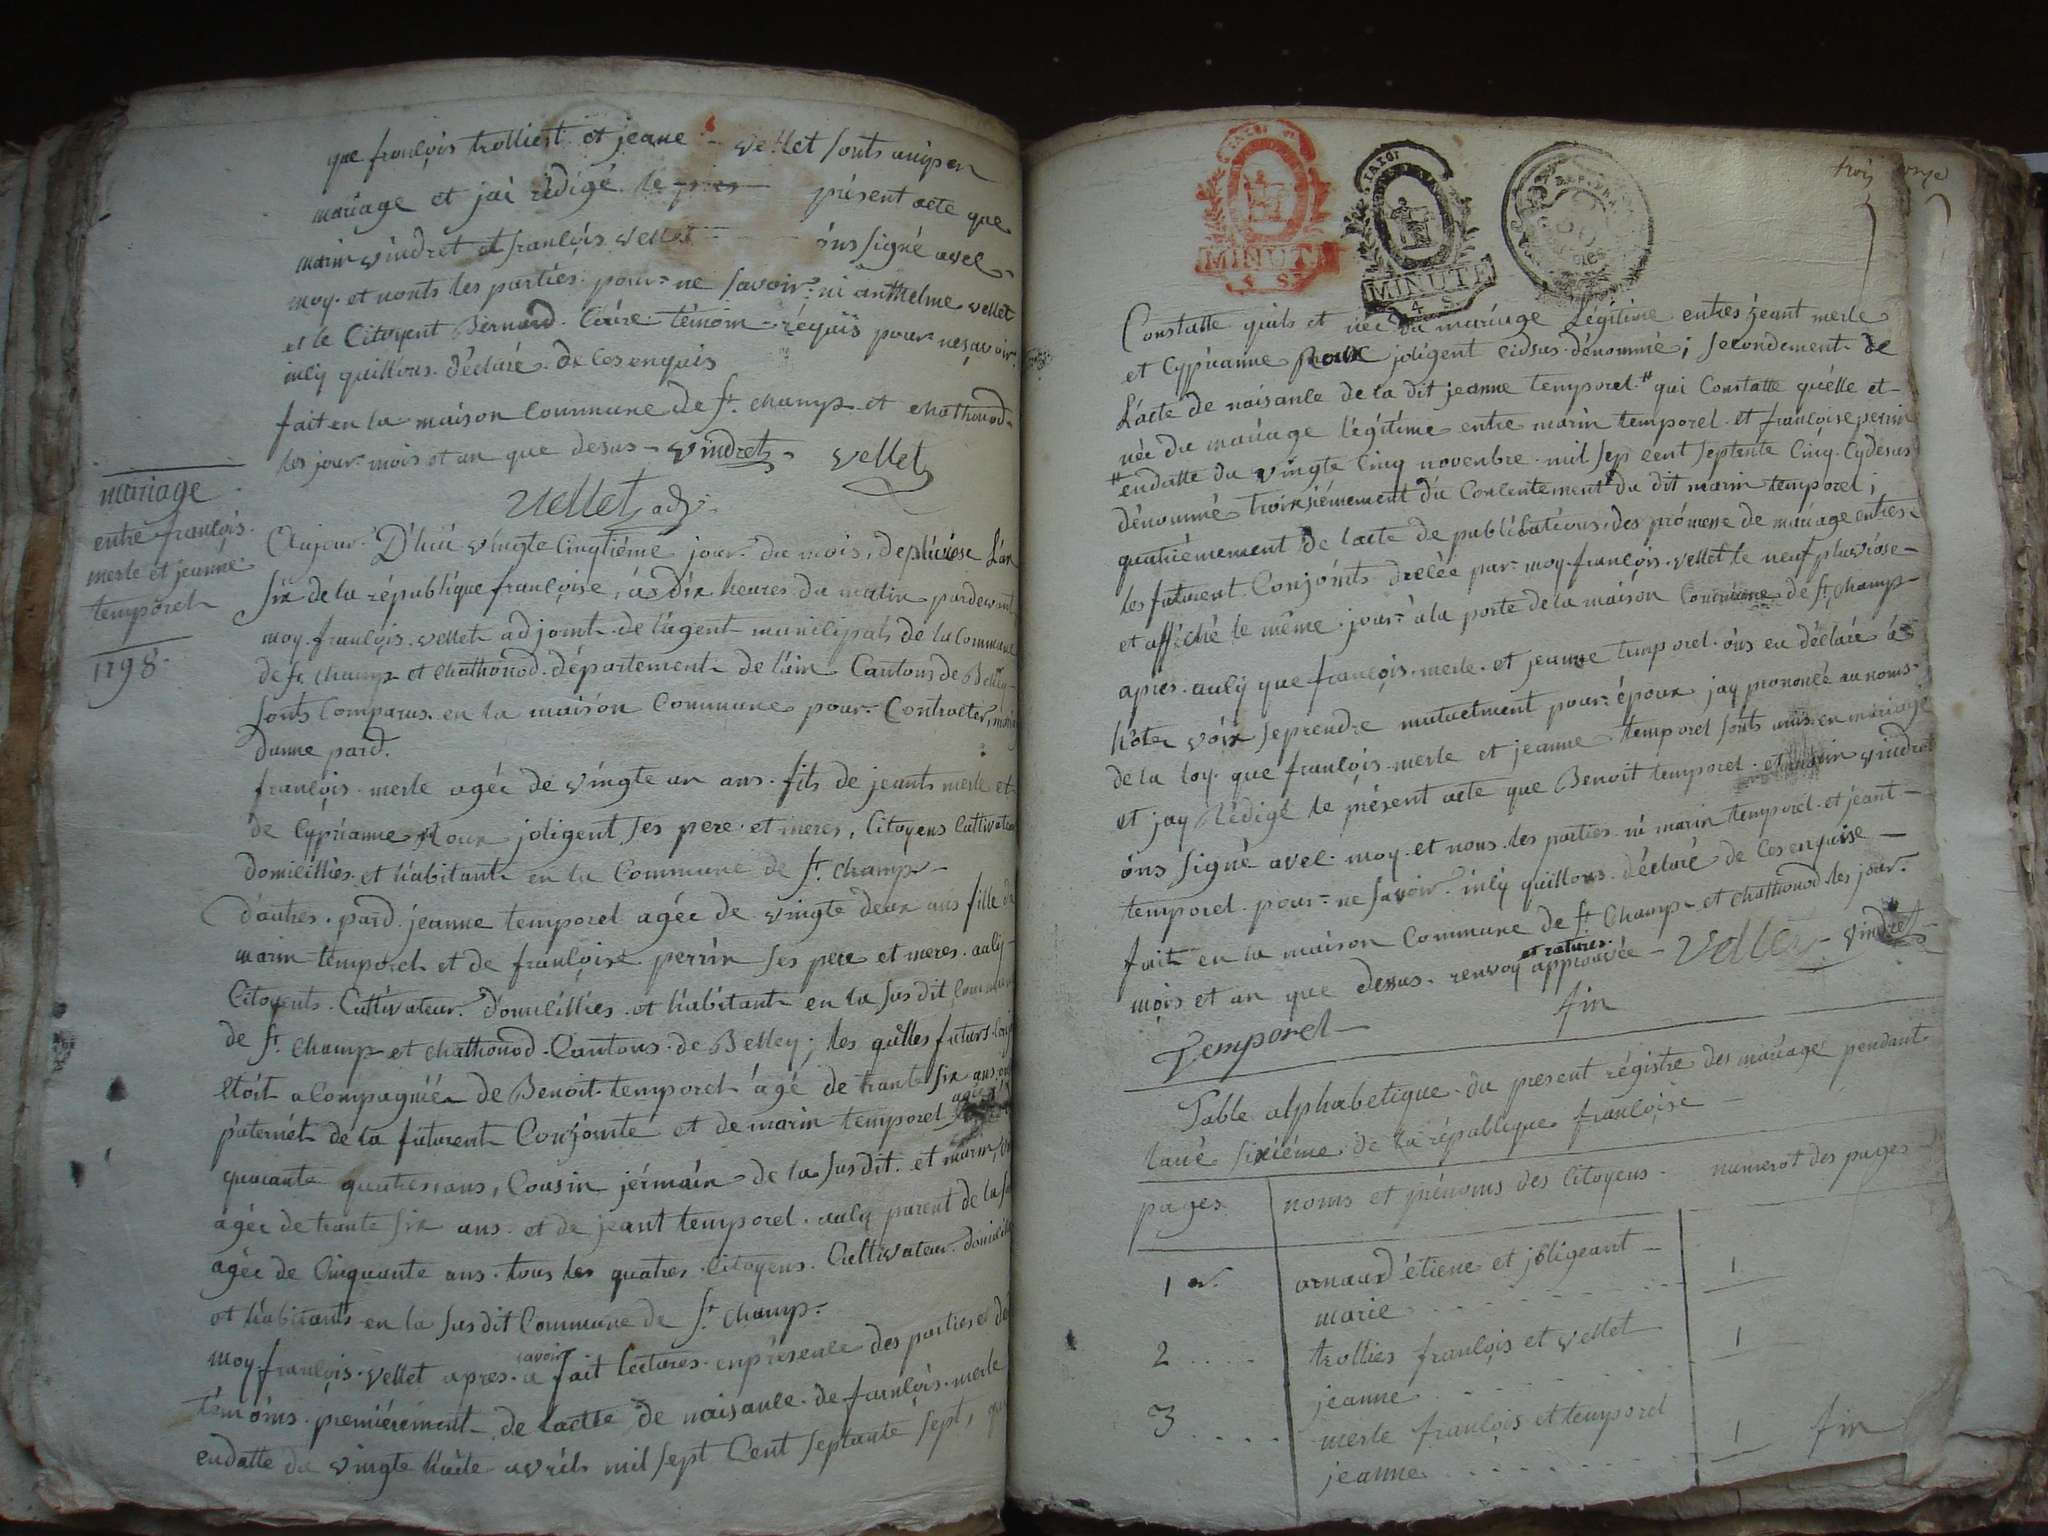 que françois trolliest et jeane vellet sonts unis en
mariage et jai rédigé le pres présent acte que
marin vindret et françois vellet óns signé avec
moy et nonts les parties pour ne savoir ni anthelme vellet
et le Citoyent Bernard témoin réquis pour ne sçavoir
inly quillons déclaré de ces enquis
fait en la maison Commune de st. champ et chathonod
les jour mois et an que desus vindret vellet
vellet adj.
mariage
entre françois
merle et jeanne
temporel
1798
Aujour D'hui vingte Cinqtième jour du mois de pluviose L'an
six de la république françoise, à dix heures du matin pardevant
moy françois vellet adjoint de l'agent municipals de la Commune
de st champ et chathonod département de l'ain Cantons de Belley
sonts Comparus en la maison Commune pour Contracter
dunne pard.
françois merle agée de vingte un ans fils de jeants merle et
de Cyprianne Roux joligent ses pere et meres, Citoyens Cultivateur
domicilliés et habitant en la Commune de st. champ
d'autres pard jeanne temporel agée de vingte deux ans fille de
marin temporel et de françoise perrin ses pere et meres auly
Citoyents Cultivateur domicilliés et habitant en la susdit Commune
de st. champ et chathonod Cantons de Belley; les quelles futurs
étóit acompagnié de Benoit temporel agé de trante six ans
paternél de la futurent Conjointe et de marin temporel agé
quarante quatres ans, Cousin jérmain de la susdit et marin
agée de trante six ans et de jeant temporel auly parent de la
agée de Cinquante ans tous les quatres Citoyens Cultivateur domicilié
et habitants en la susdit Commune de st champ
moy françois vellet apres avoir a fait lectures en présence des parties et de
témoins premiérement de lactte de naisance de françois merle
endatte du vingte huite avrils mil sept Cent septante sept,
MINUTE
MINUTE
4 S
trois onze
Constatte quils et née du mariage Légitime entres jeant merle
et Cyprianne Roux joligent cidsus dénommé; secondement de
L'acté de naisance de la dit jeanne temporel # qui Constatte quélle et
née du mariage légitime entre marin temporel et françoise perrin
# endatte du vingte Cinq novenbre mil sep cent septente Cinq Cydesus
dénommé troixsiémement du Concentement du dit marin temporel;
quatriémement de lacte de publications des prómesse de mariage entres
les futurent Conjoints par moy françois vellet le neuf pluviose
et affiché le même jour à la porte de la maison Commune de st. champ
apres auly que françois merle et jeanne temporel óns eu déclaré à
hóte vóix se prendre mutuetment pour époux jay prononcé au noms
de la loy que françois merle et jeanne temporel sonts unis en mariage
et jay Rédigé le présent acte que Benoit temporel et marin vindret
óns signé avec moy et nous les parties ni marin temporel et jeant
temporel pour ne savoir inly quillons déclaré de ces enquise
fait en la maison Commune de st Champ et chathonod les jour
et ratures
mois et an que desus renvoy approuvée Vellet vindret
Temporel fin
Table alphabetique du present régistre des mariage pendant
lané sixiéme de la république françoise
pages noms et prénoms des Citoyens numerot des pages
1 arnaud étiene et joligeant 1
marie
2 trollies françois et vellet 1
jeanne
3 merle françois et temporel 1 fin
jeanne